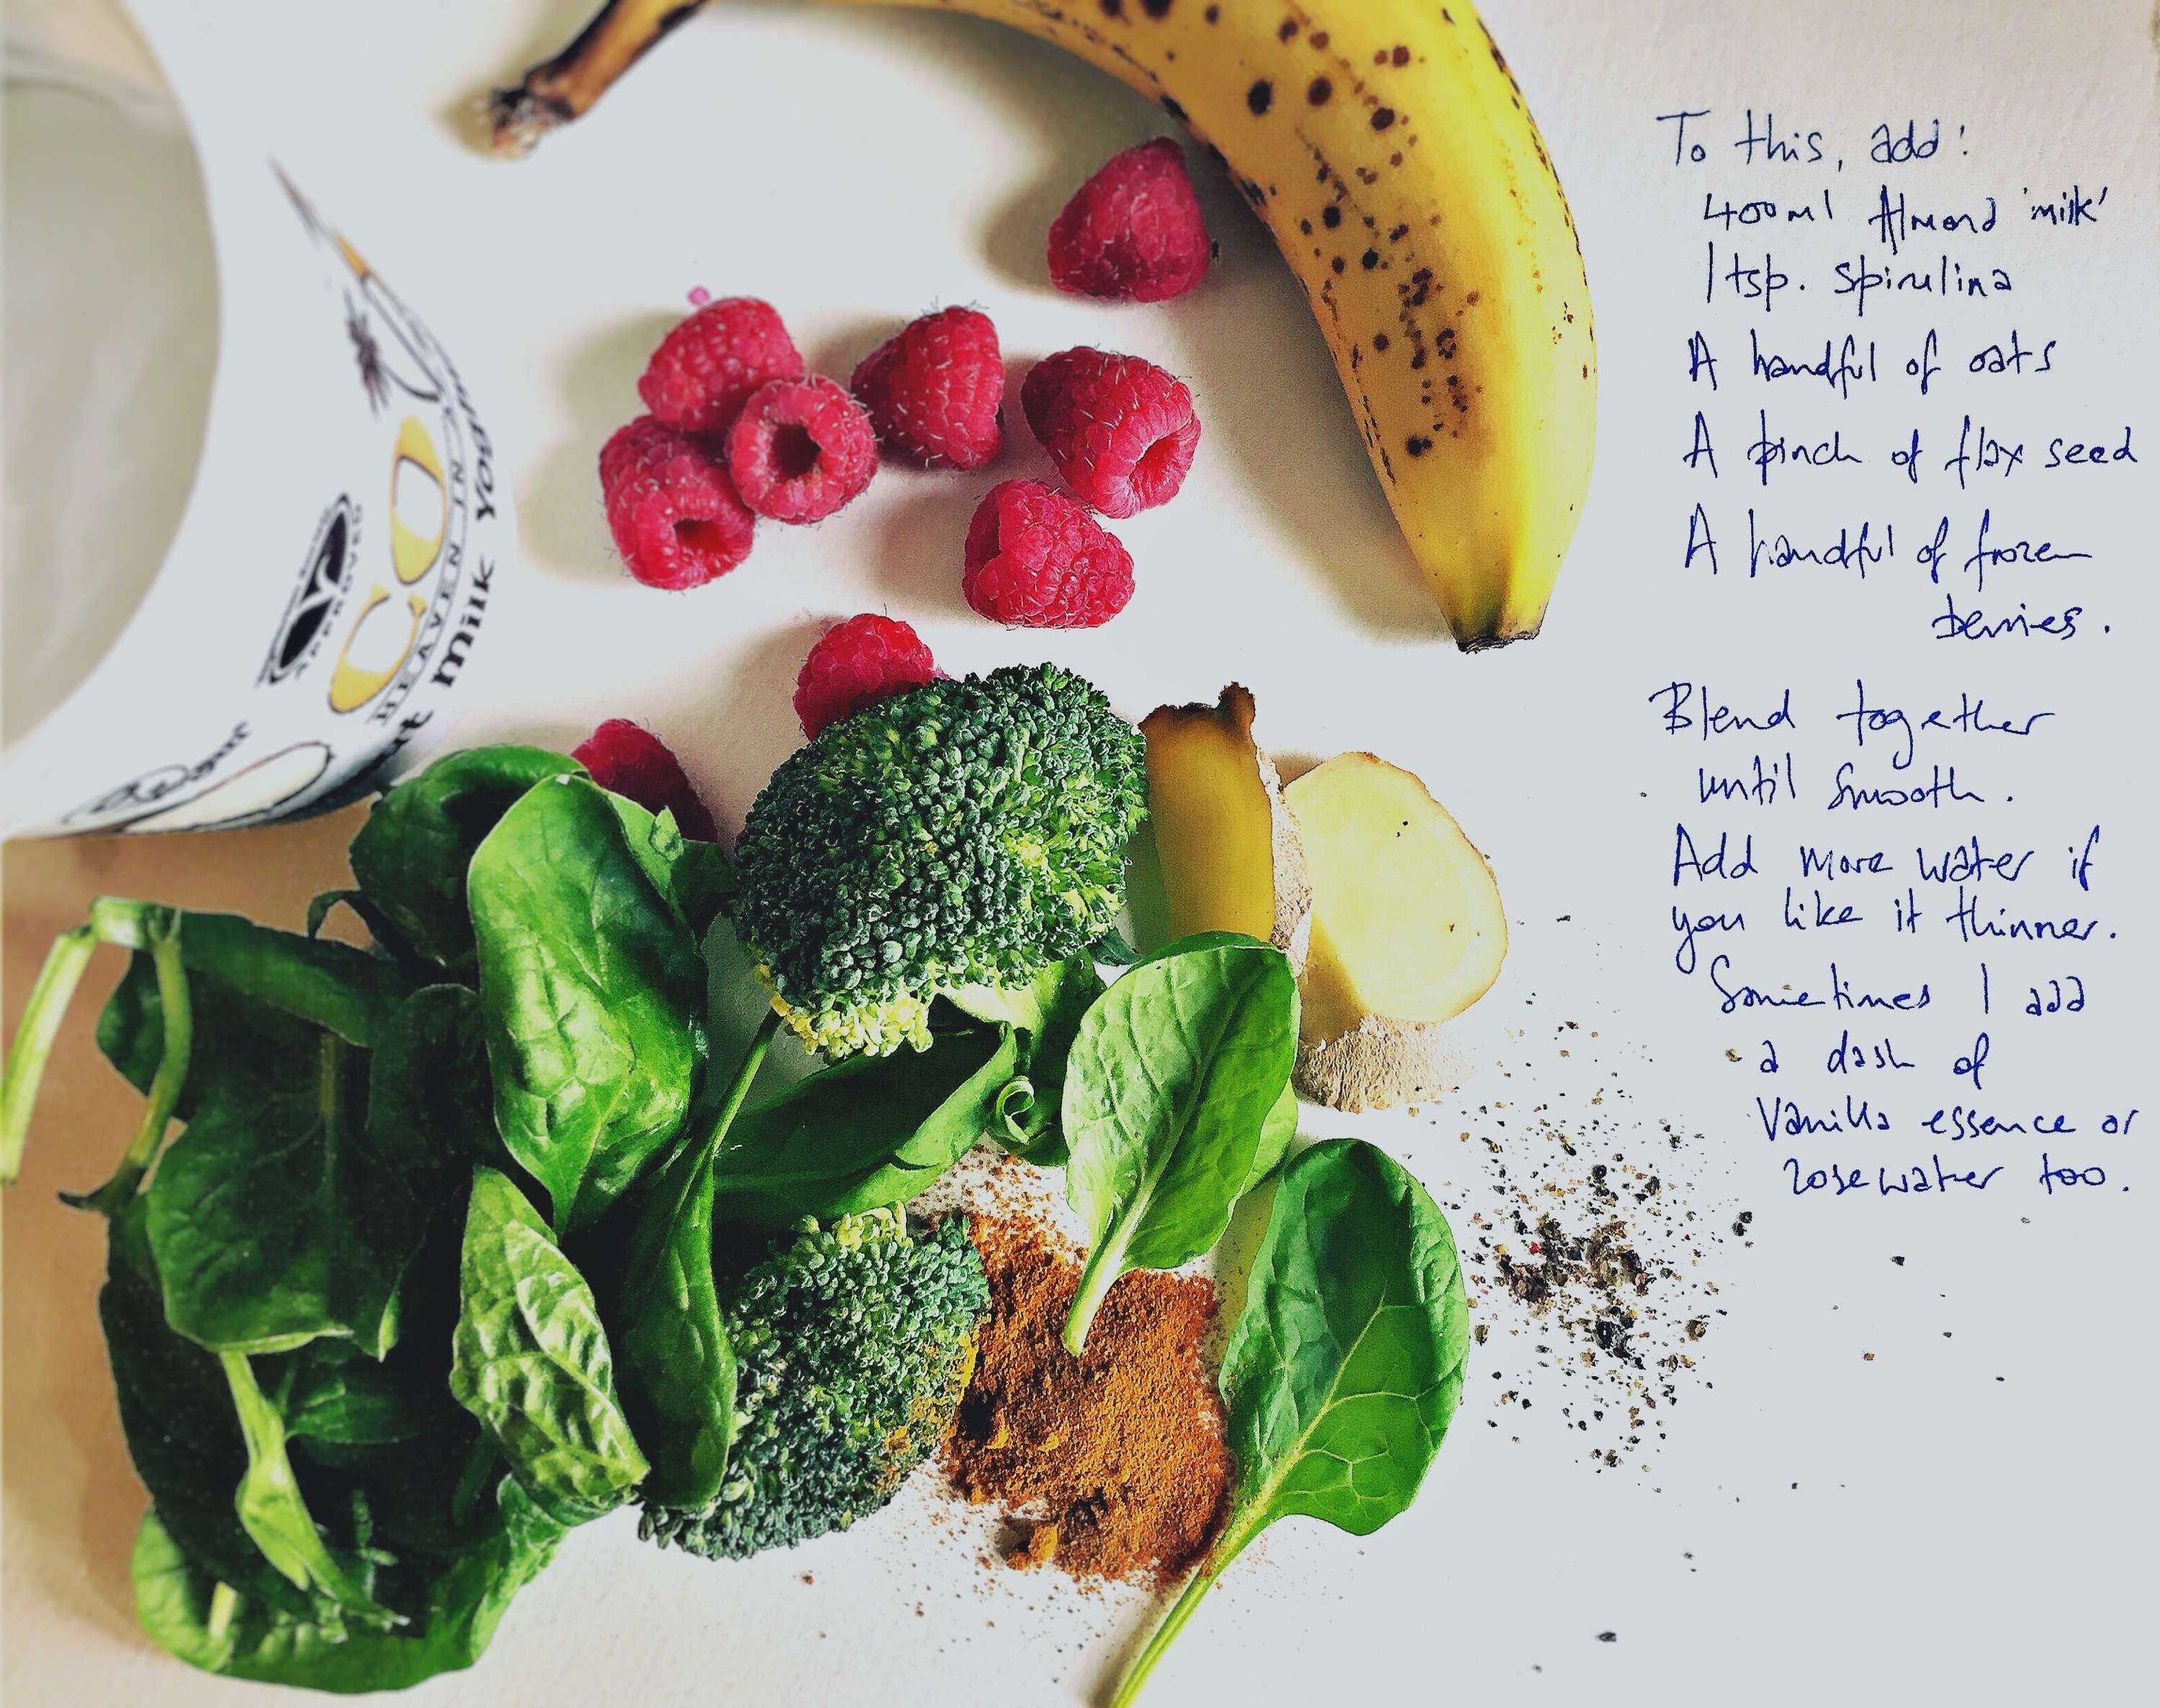 To this, add:
400ml Almond 'milk'
1tsp. spirulina
A handful of oats
A pinch of flax seed
A handful of frozen
berries.
Blend together
until smooth.
Add more water if
you like it thinner.
Sometimes I add
a dash of
Vanilla essence or
rosewater too.
CO
HEAVEN IN
milk
APPROVED